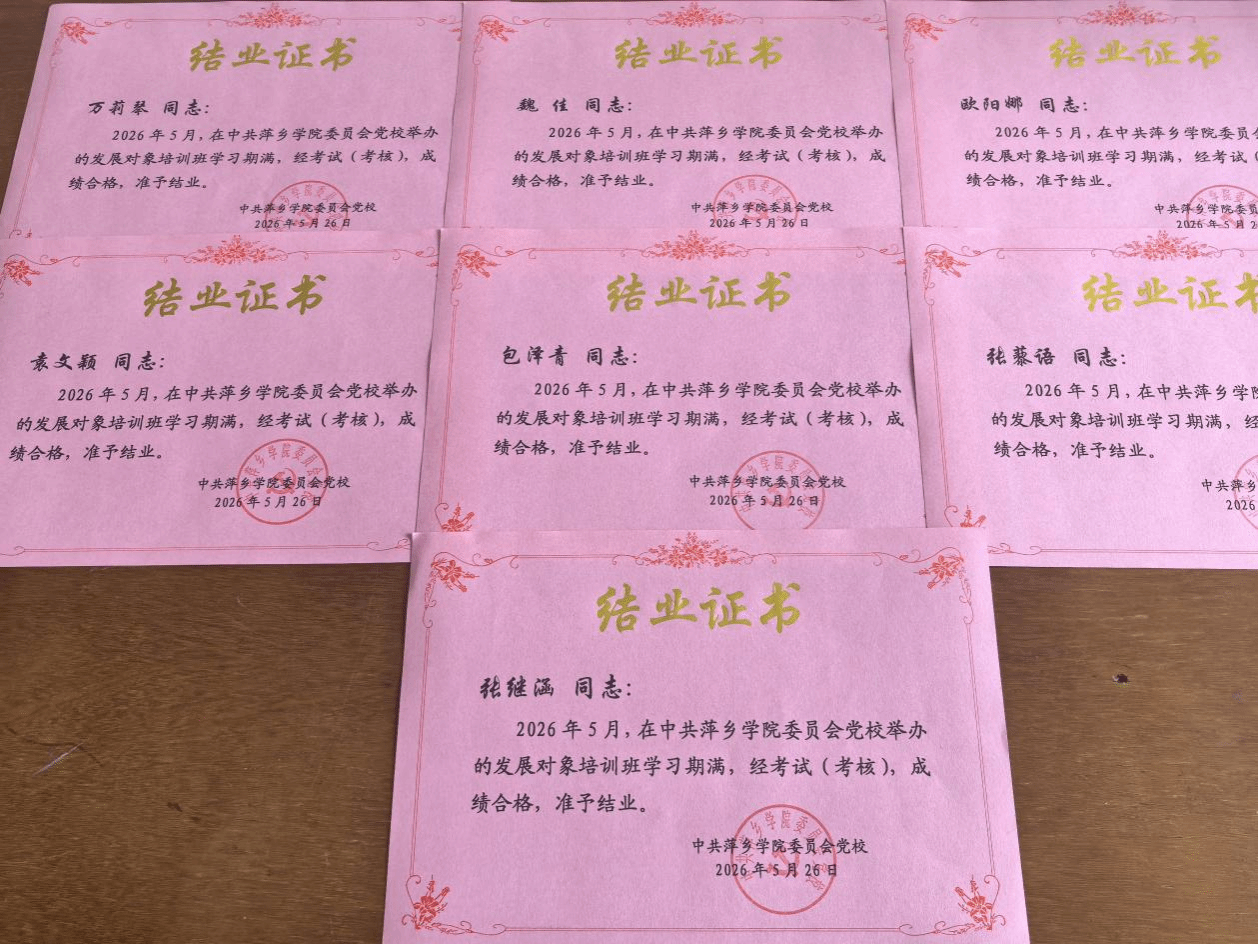 结业证书
万莉琴 同志：
2026 年 5 月，在中共萍乡学院委员会党校举办
的发展对象培训班学习期满，经考试（考核），成
绩合格，准予结业。
中共萍乡学院委员会党校
2026 年 5 月 26 日
结业证书
魏 佳 同志：
2026 年 5 月，在中共萍乡学院委员会党校举办
的发展对象培训班学习期满，经考试（考核），成
绩合格，准予结业。
中共萍乡学院委员会党校
2026 年 5 月 26 日
结业证书
欧阳娜 同志：
2026 年 5 月，在中共萍乡学院委员会
的发展对象培训班学习期满，经考试（
绩合格，准予结业。
中共萍乡学院委员
2026 年 5 月 2
结业证书
袁文颖 同志：
2026 年 5 月，在中共萍乡学院委员会党校举办
的发展对象培训班学习期满，经考试（考核），成
绩合格，准予结业。
中共萍乡学院委员会党校
2026 年 5 月 26 日
结业证书
包泽青 同志：
2026 年 5 月，在中共萍乡学院委员会党校举办
的发展对象培训班学习期满，经考试（考核），成
绩合格，准予结业。
中共萍乡学院委员会党校
2026 年 5 月 26 日
结业证书
张藜语 同志：
2026 年 5 月，在中共萍乡学
的发展对象培训班学习期满，经
绩合格，准予结业。
中共萍乡
2026
结业证书
张继涵 同志：
2026 年 5 月，在中共萍乡学院委员会党校举办
的发展对象培训班学习期满，经考试（考核），成
绩合格，准予结业。
中共萍乡学院委员会党校
2026 年 5 月 26 日